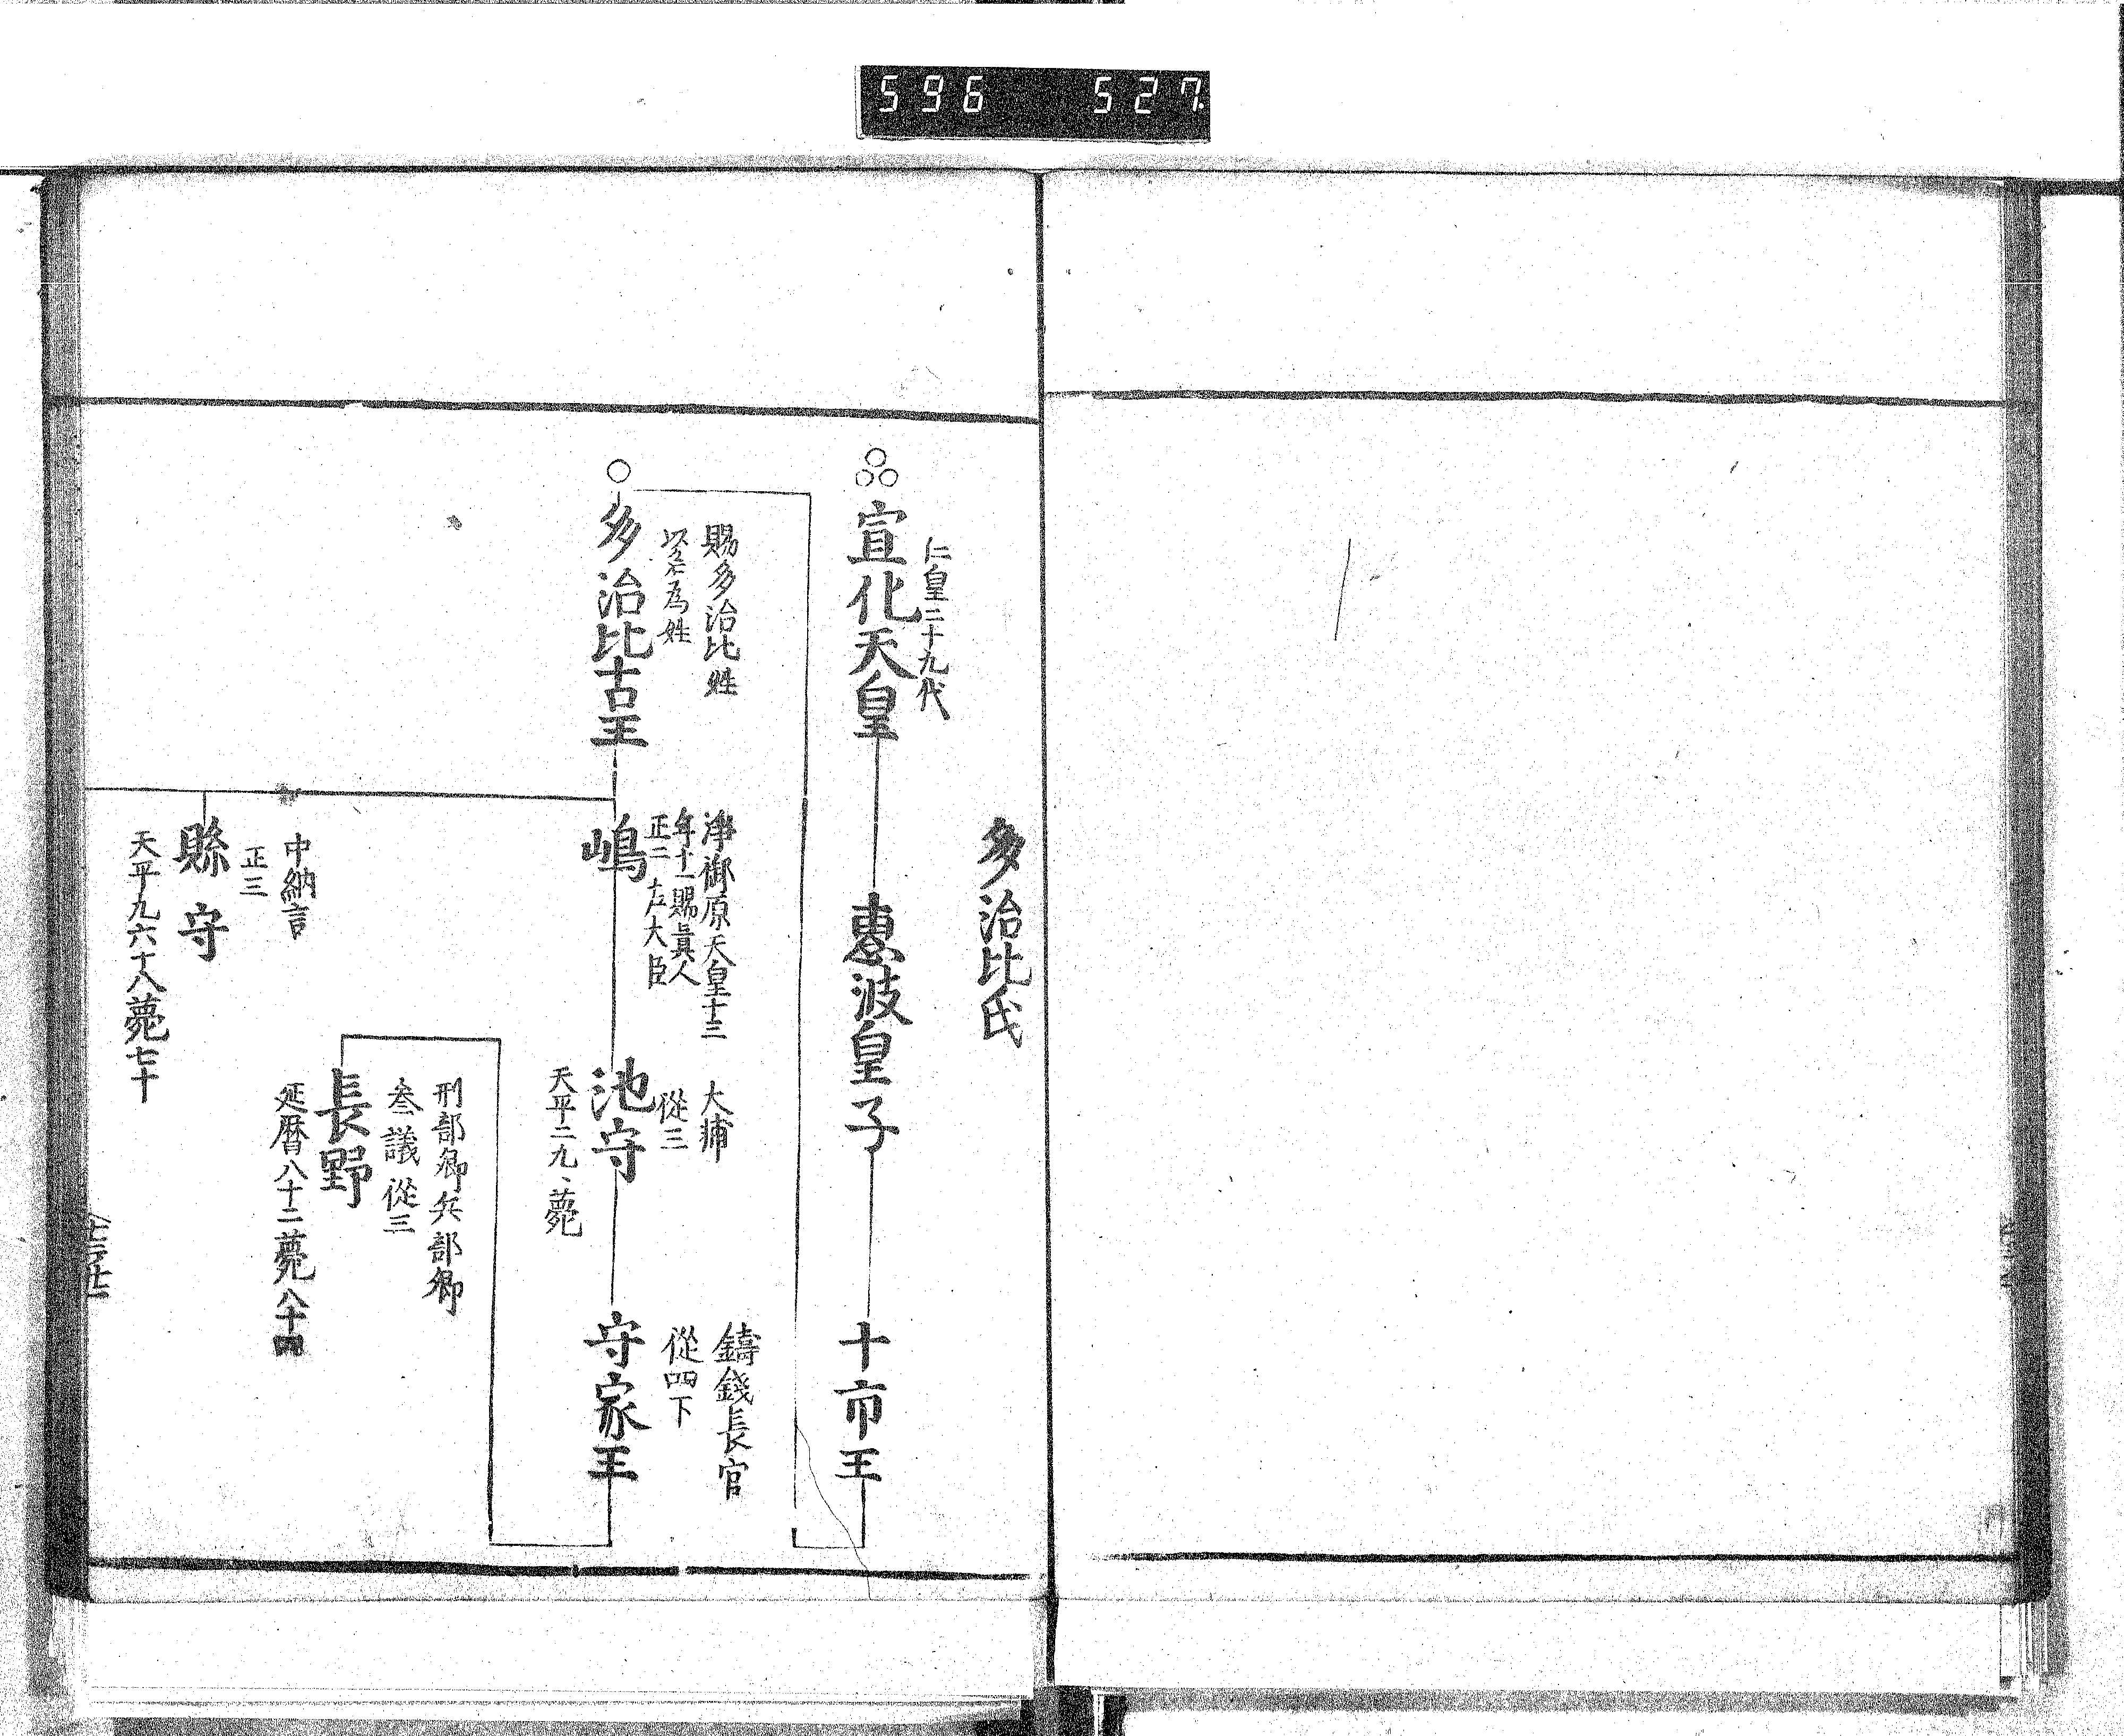 596 527.
多治比氏
仁皇二十九代
宣化天皇
惠波皇子
十市王
賜多治比姓
以名為姓
多治比古王
淨御原天皇十三
年十一賜眞人
正二 左大臣
嶋
大輔
從三
池守
天平二九、薨
鑄錢長官
從四下
守家王
刑部卿兵部卿
叅議從三
長野
延暦八十二薨八十四
中納言
正三
縣守
天平九六十八薨七十